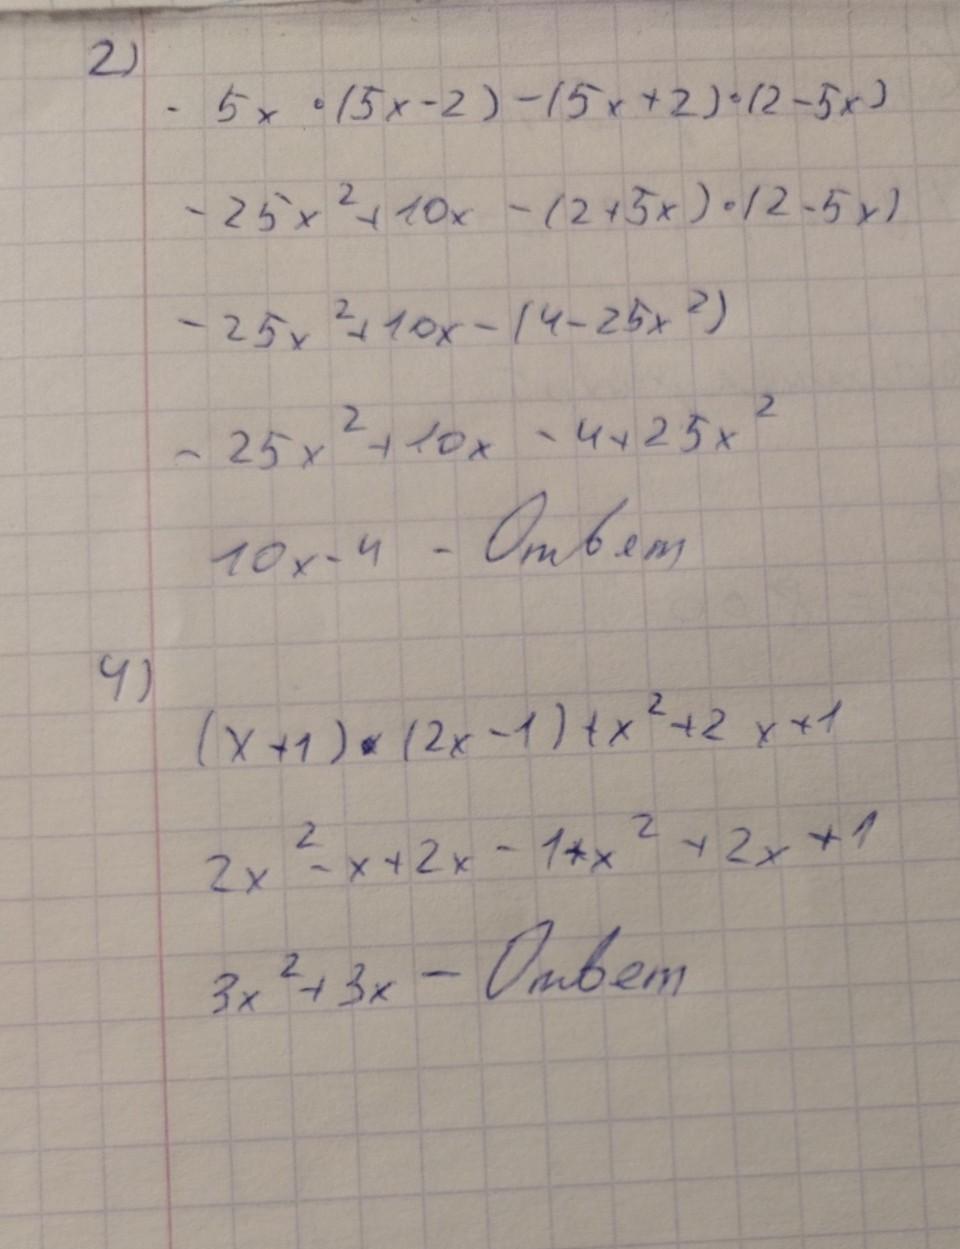 2)
- 5x · (5x-2) - (5x+2) · (2-5x)
- 25x² + 10x - (2+5x) · (2-5x)
- 25x² + 10x - (4-25x²)
- 25x² + 10x - 4 + 25x²
10x-4 - Ответ
4)
(x+1) · (2x-1) + x² + 2x + 1
2x² - x + 2x - 1 + x² + 2x + 1
3x² + 3x — Ответ